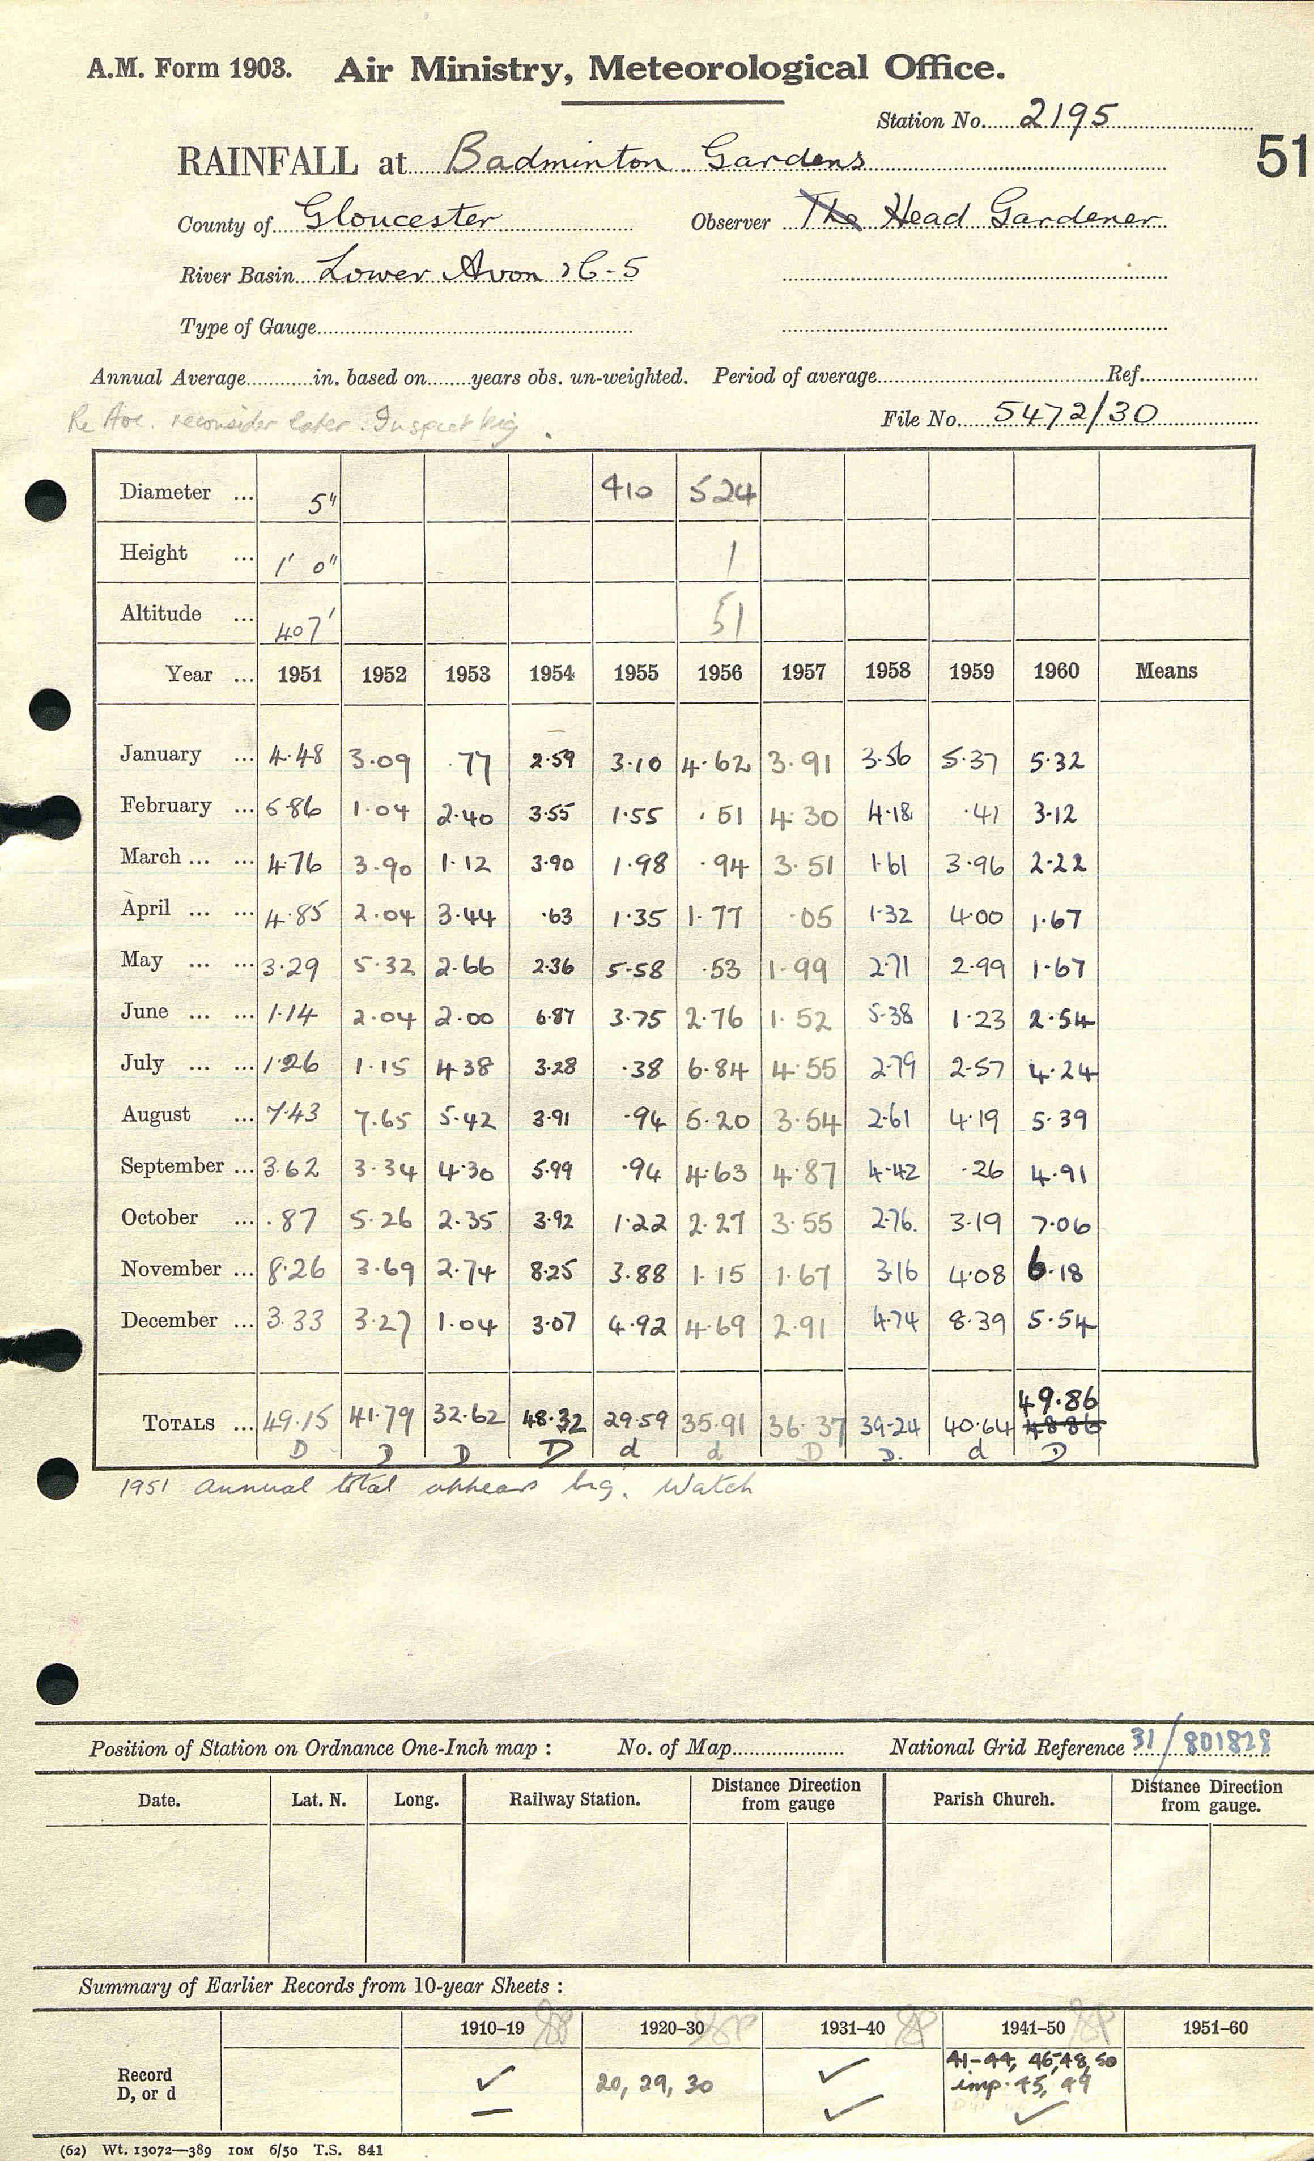 A.M. Form 1903. Air Ministry, Meteorological Office.
Station No. 2195
51
RAINFALL at Badminton Gardens
County of Gloucester Observer The Head Gardener
River Basin Lower Avon 26-5
Type of Gauge
Annual Average in. based on years obs. un-weighted. Period of average Ref.
Re Ave. reconsider later. Inspect big.
File No. 5472/30
Diameter ... 5" 410 524
Height ... 1' 0" 1
Altitude ... 407' 51
Year ... 1951 1952 1953 1954 1955 1956 1957 1958 1959 1960 Means
January ... 4.48 3.09 .77 2.59 3.10 4.62 3.91 3.56 5.37 5.32
February ... 5.86 1.04 2.40 3.55 1.55 .51 4.30 4.18 .41 3.12
March ... ... 4.76 3.90 1.12 3.90 1.98 .94 3.51 1.61 3.96 2.22
April ... ... 4.85 2.04 3.44 .63 1.35 1.77 .05 1.32 4.00 1.67
May ... ... 3.29 5.32 2.66 2.36 5.58 .53 1.99 2.71 2.99 1.67
June ... ... 1.14 2.04 2.00 6.87 3.75 2.76 1.52 5.38 1.23 2.54
July ... ... 1.26 1.15 4.38 3.28 .38 6.84 4.55 2.79 2.57 4.24
August ... 7.43 7.65 5.42 3.91 .94 5.20 3.54 2.61 4.19 5.39
September ... 3.62 3.34 4.30 5.99 .94 4.63 4.87 4.42 .26 4.91
October ... .87 5.26 2.35 3.92 1.22 2.27 3.55 2.76. 3.19 7.06
November ... 8.26 3.69 2.74 8.25 3.88 1.15 1.67 3.16 4.08 6.18
December ... 3.33 3.27 1.04 3.07 4.92 4.69 2.91 4.74 8.39 5.54
49.86
TOTALS ... 49.15 41.79 32.62 48.32 29.59 35.91 36.37 39.24 40.64 48.86
D D D D d d D D. d D
1951 annual total appears big. Watch
Position of Station on Ordnance One-Inch map : No. of Map National Grid Reference 31/801828
Date. Lat. N. Long. Railway Station. Distance Direction from gauge Parish Church. Distance Direction from gauge.
Summary of Earlier Records from 10-year Sheets :
1910-19 1920-30 1931-40 1941-50 1951-60
Record D, or d ✓ 20, 29, 30 ✓ 41-44, 46, 48, 50
imp. 45, 49
— ✓ ✓
(62) Wt. 13072—389 10M 6/50 T.S. 841